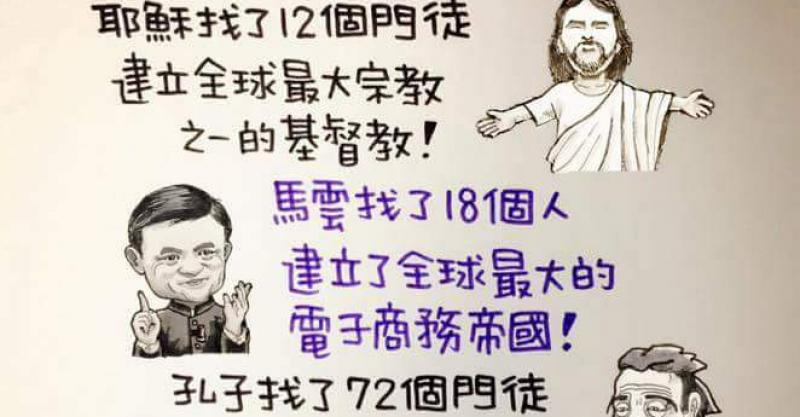 耶穌找了12個門徒
建立全球最大宗教
之一的基督教!
馬雲找了18個人
建立了全球最大的
電子商務帝國!
孔子找了72個門徒